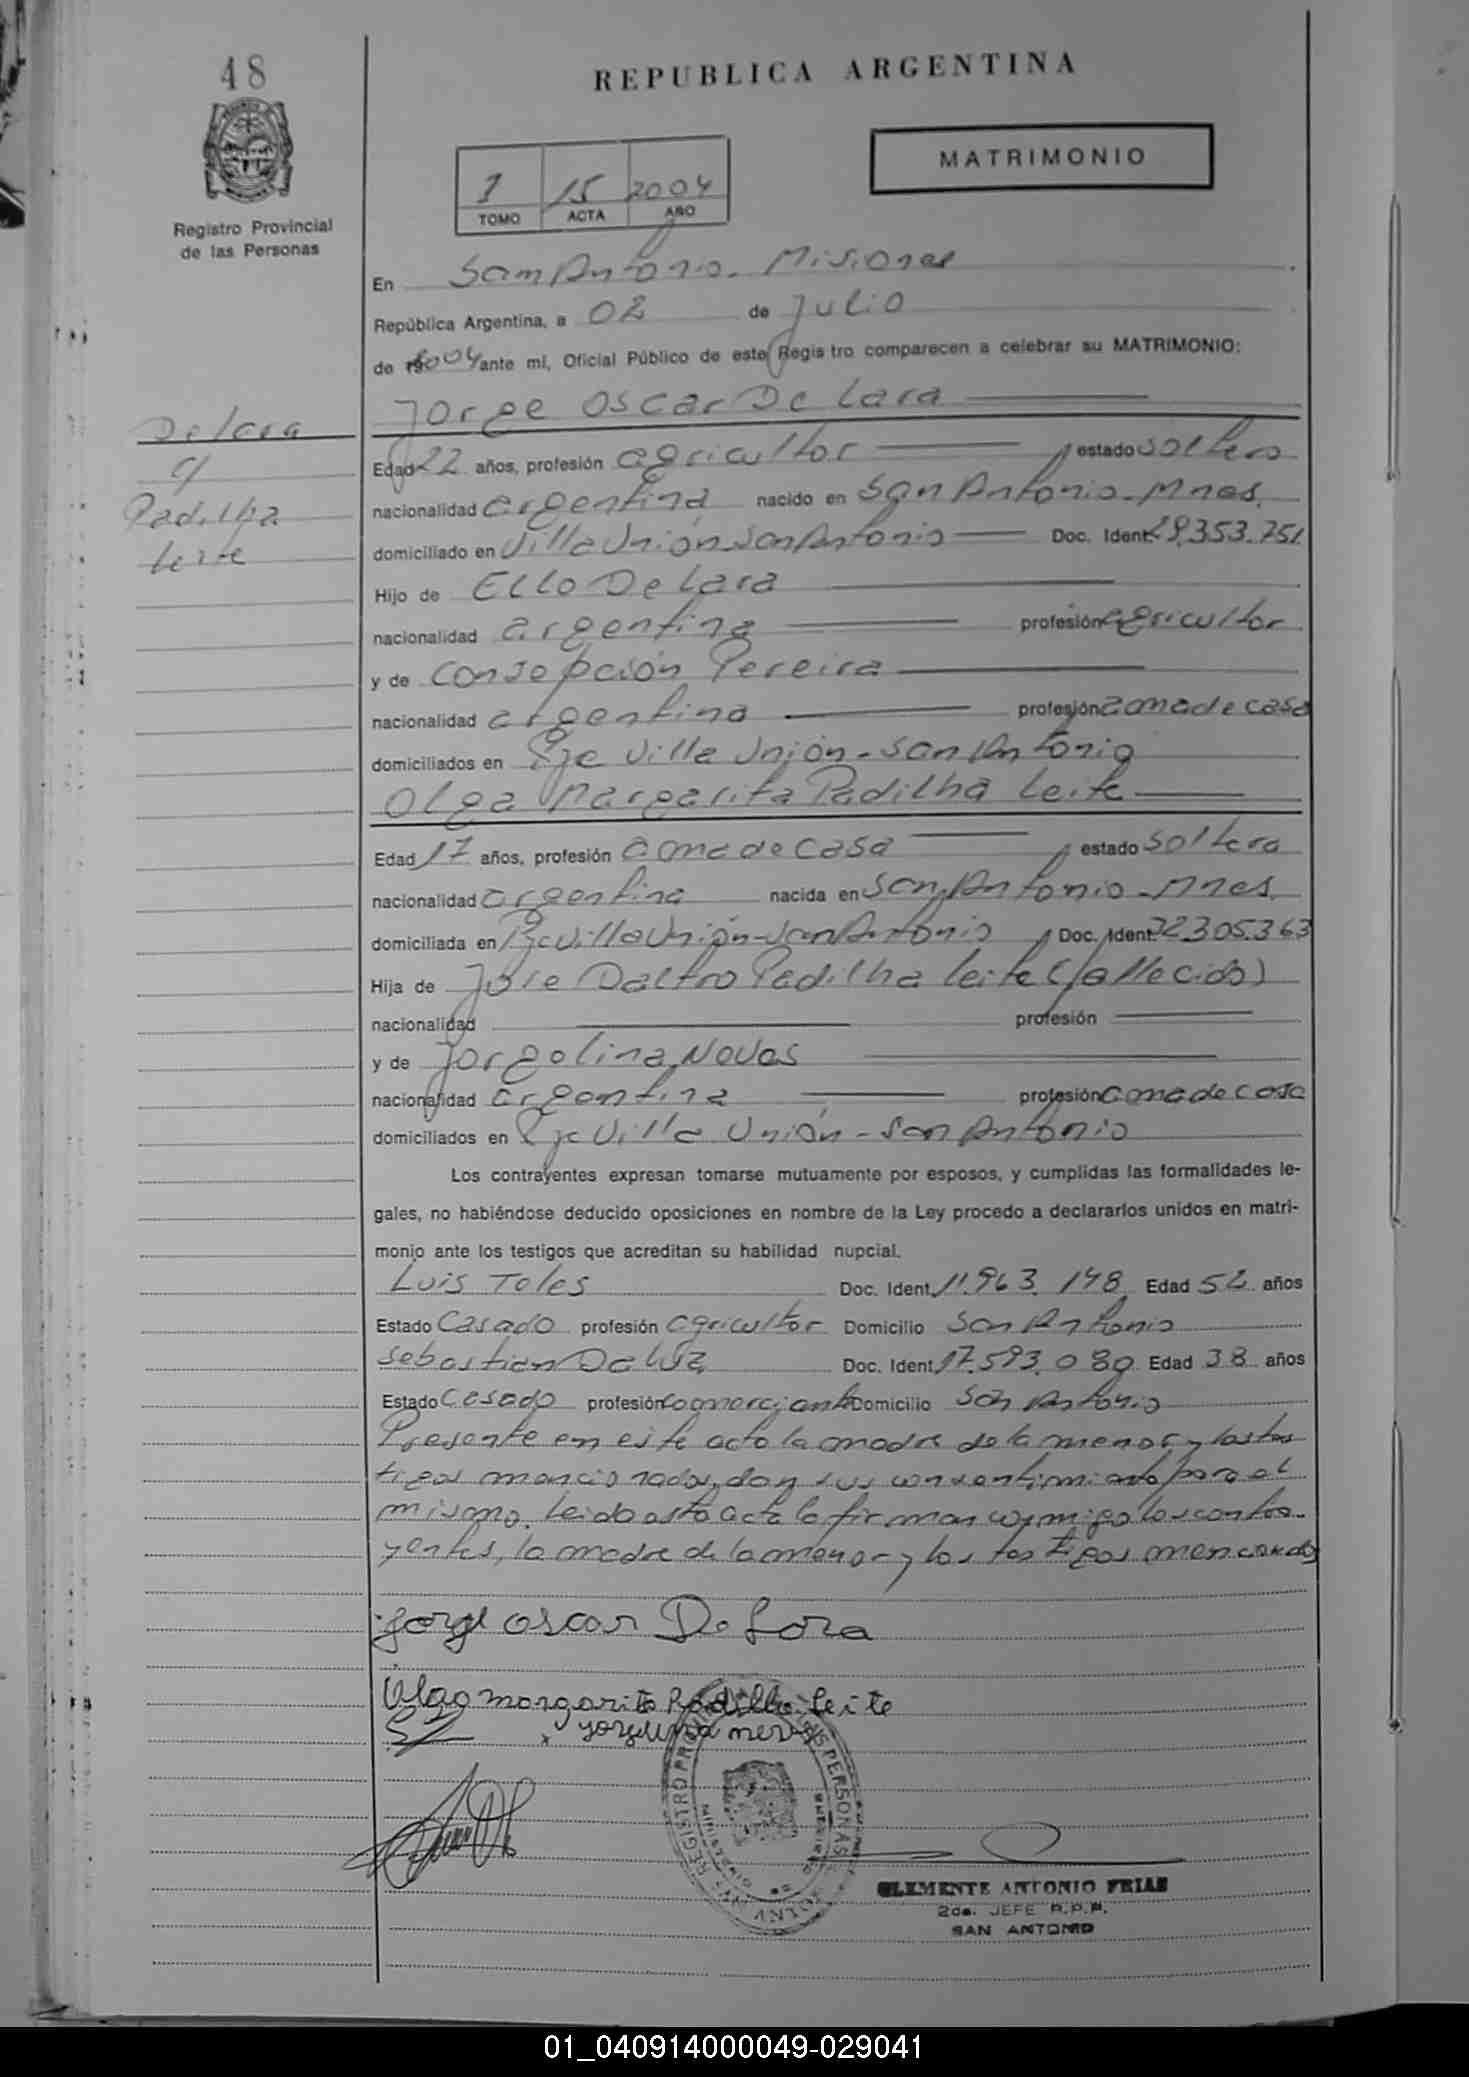 48
REPUBLICA ARGENTINA
MATRIMONIO
1 15 2004
TOMO ACTA AÑO
Registro Provincial
de las Personas
En San Antonio - Misiones
República Argentina, a 02 de Julio
de 2004 ante mí, Oficial Público de este Registro comparecen a celebrar su MATRIMONIO:
Jorge Oscar De Lara
De lara
c/
Padilha
Leite
Edad 22 años, profesión agricultor estado soltero
nacionalidad argentina nacido en San Antonio - Mnes.
domiciliado en Villa Unión - San Antonio Doc. Ident. 29.353.751
Hijo de Elio De Lara
nacionalidad argentina profesión agricultor
y de Consepción Pereira
nacionalidad argentina profesión ama de casa
domiciliados en Pje Villa Unión - San Antonio
Olga Margarita Padilha Leite
Edad 17 años, profesión ama de casa estado soltera
nacionalidad argentina nacida en San Antonio - Mnes.
domiciliada en Pje Villa Unión - San Antonio Doc. Ident. 32.305.363
Hija de José Daltro Padilha Leite (fallecido)
nacionalidad profesión
y de Jorgolina Neves
nacionalidad argentina profesión ama de casa
domiciliados en Pje Villa Unión - San Antonio
Los contrayentes expresan tomarse mutuamente por esposos, y cumplidas las formalidades le-
gales, no habiéndose deducido oposiciones en nombre de la Ley procedo a declararlos unidos en matri-
monio ante los testigos que acreditan su habilidad nupcial.
Luis Teles Doc. Ident. 11.963.148 Edad 52 años
Estado Casado profesión agricultor Domicilio San Antonio
Sebastian Da Luz Doc. Ident. 17.593.089 Edad 38 años
Estado Casado profesión comerciante Domicilio San Antonio
Presente en este acto la madre de la menor y los tes
tigos mencionados, dan sus consentimiento para el
mismo. Leido esta acta la firman conmigo los contra-
yentes, la madre de la menor y los testigos mencionados
Jorge Oscar De Lara
Olga margarita Padilha Leite
REGISTRO PROVINCIAL DE LAS PERSONAS
CLEMENTE ANTONIO FRIAS
2do. JEFE R.P.P.
SAN ANTONIO
01_040914000049-029041